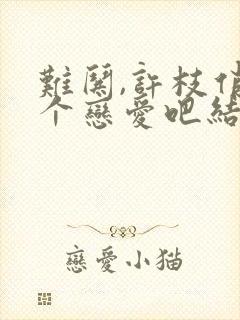 難関,許枝俏
个戀愛吧結
戀愛小猫